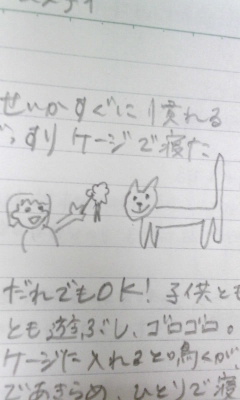 せいかすぐに慣れる
ぐっすりケージで寝た
だれでもOK！子供とも
とも遊ぶし、ゴロゴロ。
ケージに入れると鳴くが
であきらめ、ひとりで寝